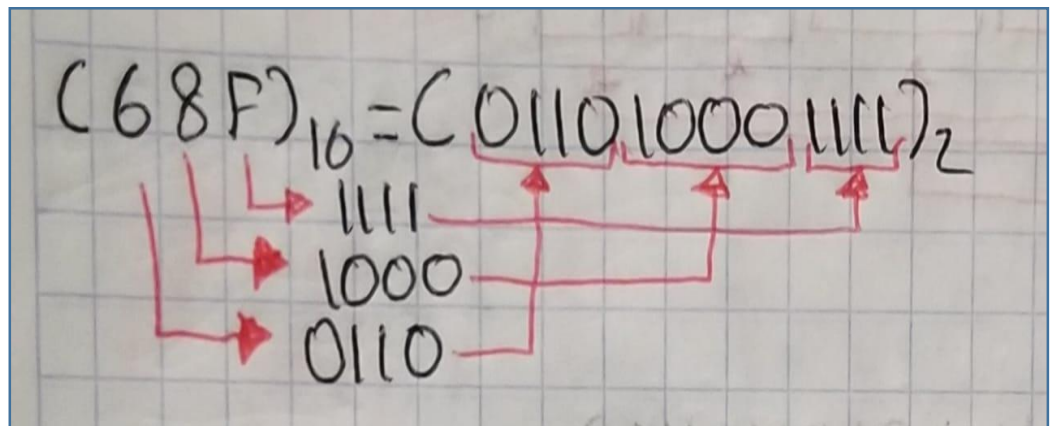 (68F)₁₆=(011010001111)₂
1111
1000
0110